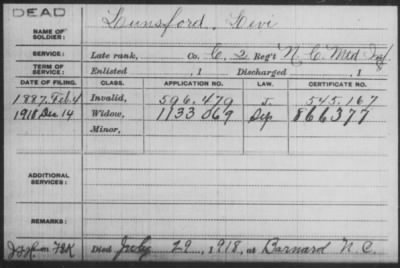 DEAD
NAME OF SOLDIER: Lunsford, Levi
SERVICE: Late rank, Co. E, 2 Reg't N. C. Mtd Inf
TERM OF SERVICE: Enlisted , 1 Discharged , 1
DATE OF FILING. CLASS. APPLICATION NO. LAW. CERTIFICATE NO.
1887 Feb 4 Invalid, 596.479 J. 545.167
1918 Dec 14 Widow, 1133 069 866377
Minor,
ADDITIONAL SERVICES:
REMARKS:
Died July 29, 1918, at Barnard N. C.